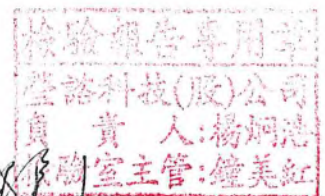 檢驗報告專用章
科技(股)公司
負責人:楊炯浩
室主管:鐘美紅